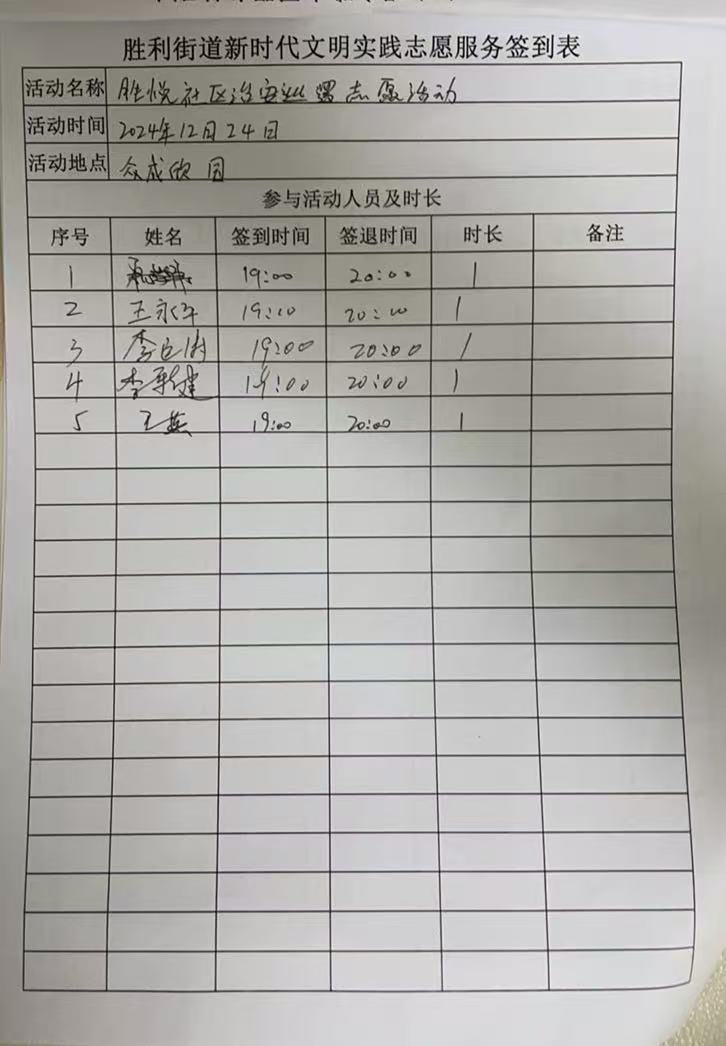 胜利街道新时代文明实践志愿服务签到表
活动名称 胜悦社区治安巡逻志愿活动
活动时间 2024年12月24日
活动地点 众成欣园
参与活动人员及时长
序号 姓名 签到时间 签退时间 时长 备注
1 19:00 20:00 1
2 王永军 19:00 20:00 1
3 19:00 20:00 1
4 李新健 19:00 20:00 1
5 王燕 19:00 20:00 1